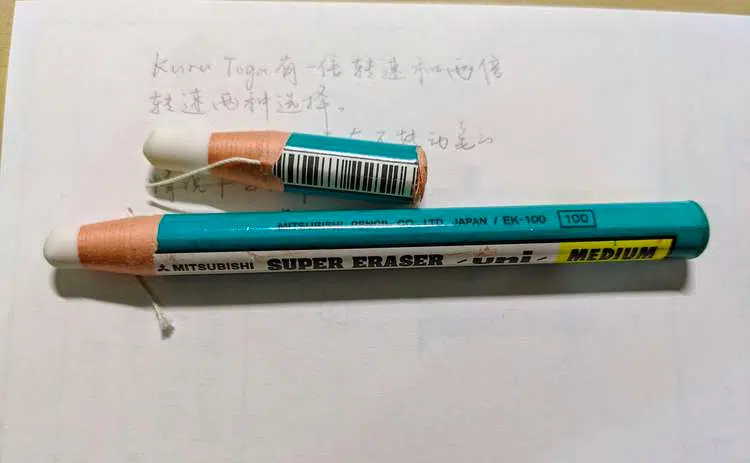 Kuru Toga有一倍转速和两倍
转速两种选择。
MITSUBISHI PENCIL CO., LTD. JAPAN / EK-100 100
MITSUBISHI SUPER ERASER uni MEDIUM